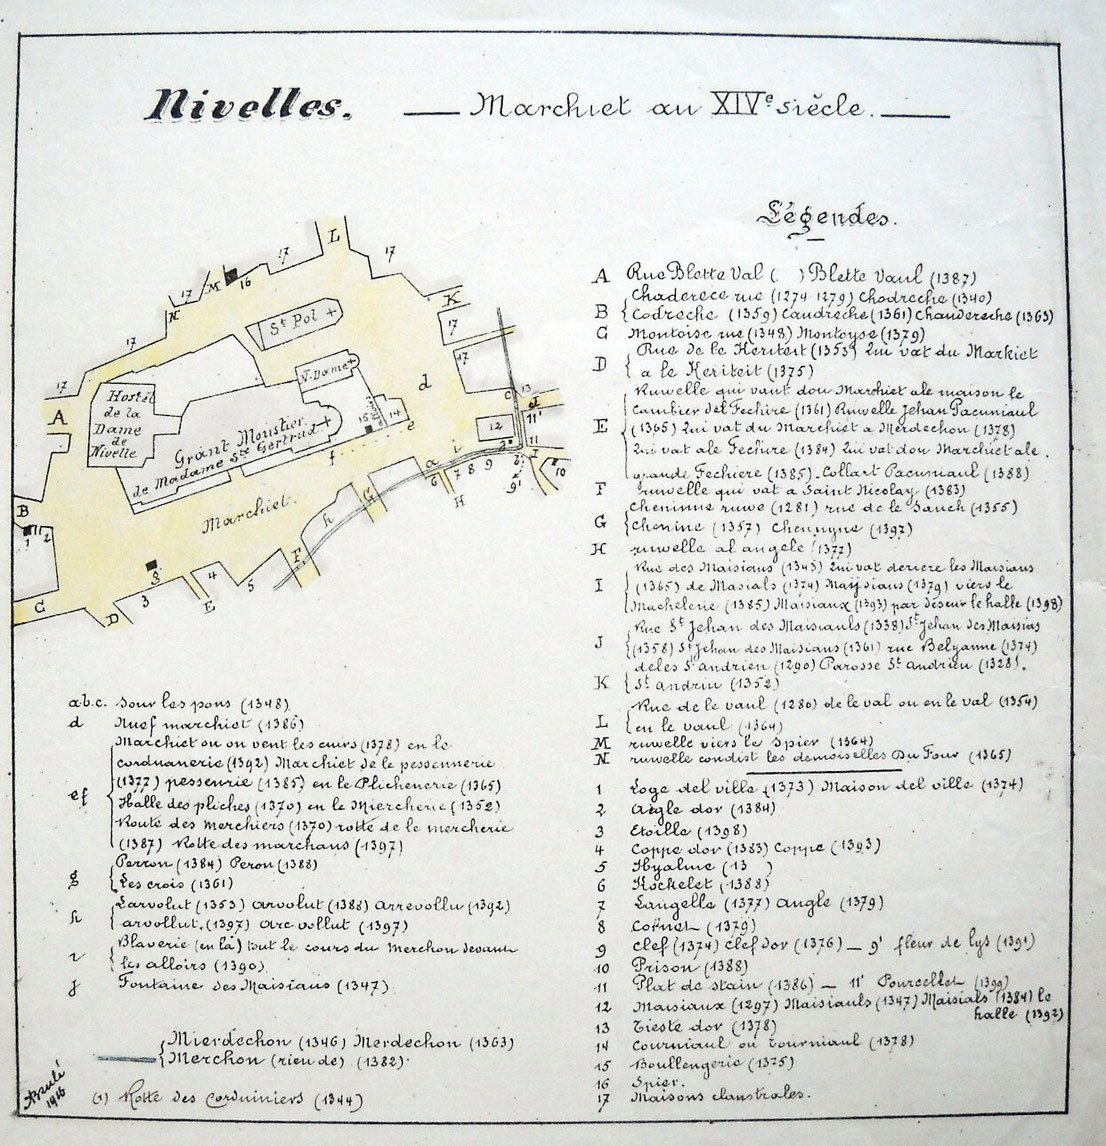 Nivelles. — Marchiet au XIVe siècle. —
Légendes.
A Rue Blette Val ( ) Blette Vaul (1387)
B Chaderece rue (1274 1279) Chodreche (1340)
Codreche (1359) Caudreche (1361) Chandereche (1363)
C Montoise rue (1348) Montoyse (1379)
D Rue de le Keriteit (1353) Qui vat du Markiet
a le Keriteit (1375)
E Ruwelle qui vaut dou Marchiet ale maison le
Cambier del Fechire (1361) Ruwelle Jehan Pacuniaul
(1365) Qui vat du Marchiet a Merdechon (1378)
Qui vat ale Fechire (1384) Qui vat dou Marchiet ale
grande Fechiere (1385). Collart Pacuniaul (1388)
F ruwelle qui vat a Saint Nicolay (1383)
G Cheninne ruwe (1281) rue de le Sauch (1355)
Chenine (1357) Chennyne (1397)
H ruwelle al angele (1377)
I Rue des Maisians (1343) Qui vat deriere les Maisians
(1365) de Masials (1374) Maijsians (1379) viers le
Machelerie (1385) Maisiaux (1393) par deseur le halle (1398)
J Rue St Jehan des Maisiauls (1338) St Jehan des Maisias
(1358) St Jehan des Maisians (1361) rue Belyanne (1374)
K deles St andrien (1290) Parosse St Andrieu (1328).
St Andriu (1352)
L Rue de le vaul (1280) de le val ou en le val (1354)
en le vaul (1364)
M ruwelle viers le Spier (1364)
N ruwelle condist les demoiselles Du Four (1365)
1 Loge del ville (1373) Maison del ville (1374)
2 Aigle dor (1384)
3 Etoille (1398)
4 Coppe dor (1383) Coppe (1393)
5 Hyalme (13 )
6 Rochelet (1388)
7 Langelle (1377) Angle (1379)
8 Cornet (1379)
9 Clef (1374) Clef dor (1376) — 9' fleur de lys (1391)
10 Prison (1388)
11 Plat de stain (1386) — 11' Pourcellet (1399)
12 Maisiaux (1297) Maisiauls (1347) Maisials (1384) le
halle (1392)
13 Tieste dor (1378)
14 Courniaul ou Tourniaul (1378)
15 Boullengerie (1375)
16 Spier.
17 Maisons claustrales.
a.b.c. Sour les pons (1348)
d Nuef marchiet (1386)
ef Marchiet ou on vent les cuirs (1378) en le
corduanerie (1392) Marchiet de le pessennerie
(1377) pessenrie (1385) en le Plichenerie (1365)
Halle des pliches (1370) en le Miercherie (1352)
Route des merchiers (1370) rotte de le mercherie
(1387) Rotte des marchans (1397)
g Perron (1384) Peron (1388)
Les crois (1361)
h Larvolut (1353) arvolut (1388) Arrevollu (1392)
arvollut. (1397) arc vollut (1397)
i Blaverie (en là) tout le cours du Merchon devant
les alloirs (1390)
j Fontaine des Maisians (1347)
Mierdechon (1346) Merdechon (1363)
Merchon (rieu de) (1382).
(1) Rotte des Corduiniers (1344)
1916
L
17
17
16
M
17
N
K
St Pol +
17
17
17
N. Dame +
17
d
Hostel
de la
Dame
de
Nivelle
A
Grant Moustier
de Madame Ste Gertrud +
15
14
e
f
c
13
J
11'
12
11
I
10
9'
a
i
6
7
8
9
H
G
h
Marchiet.
B
1
2
g
F
C
D
3
4
E
5